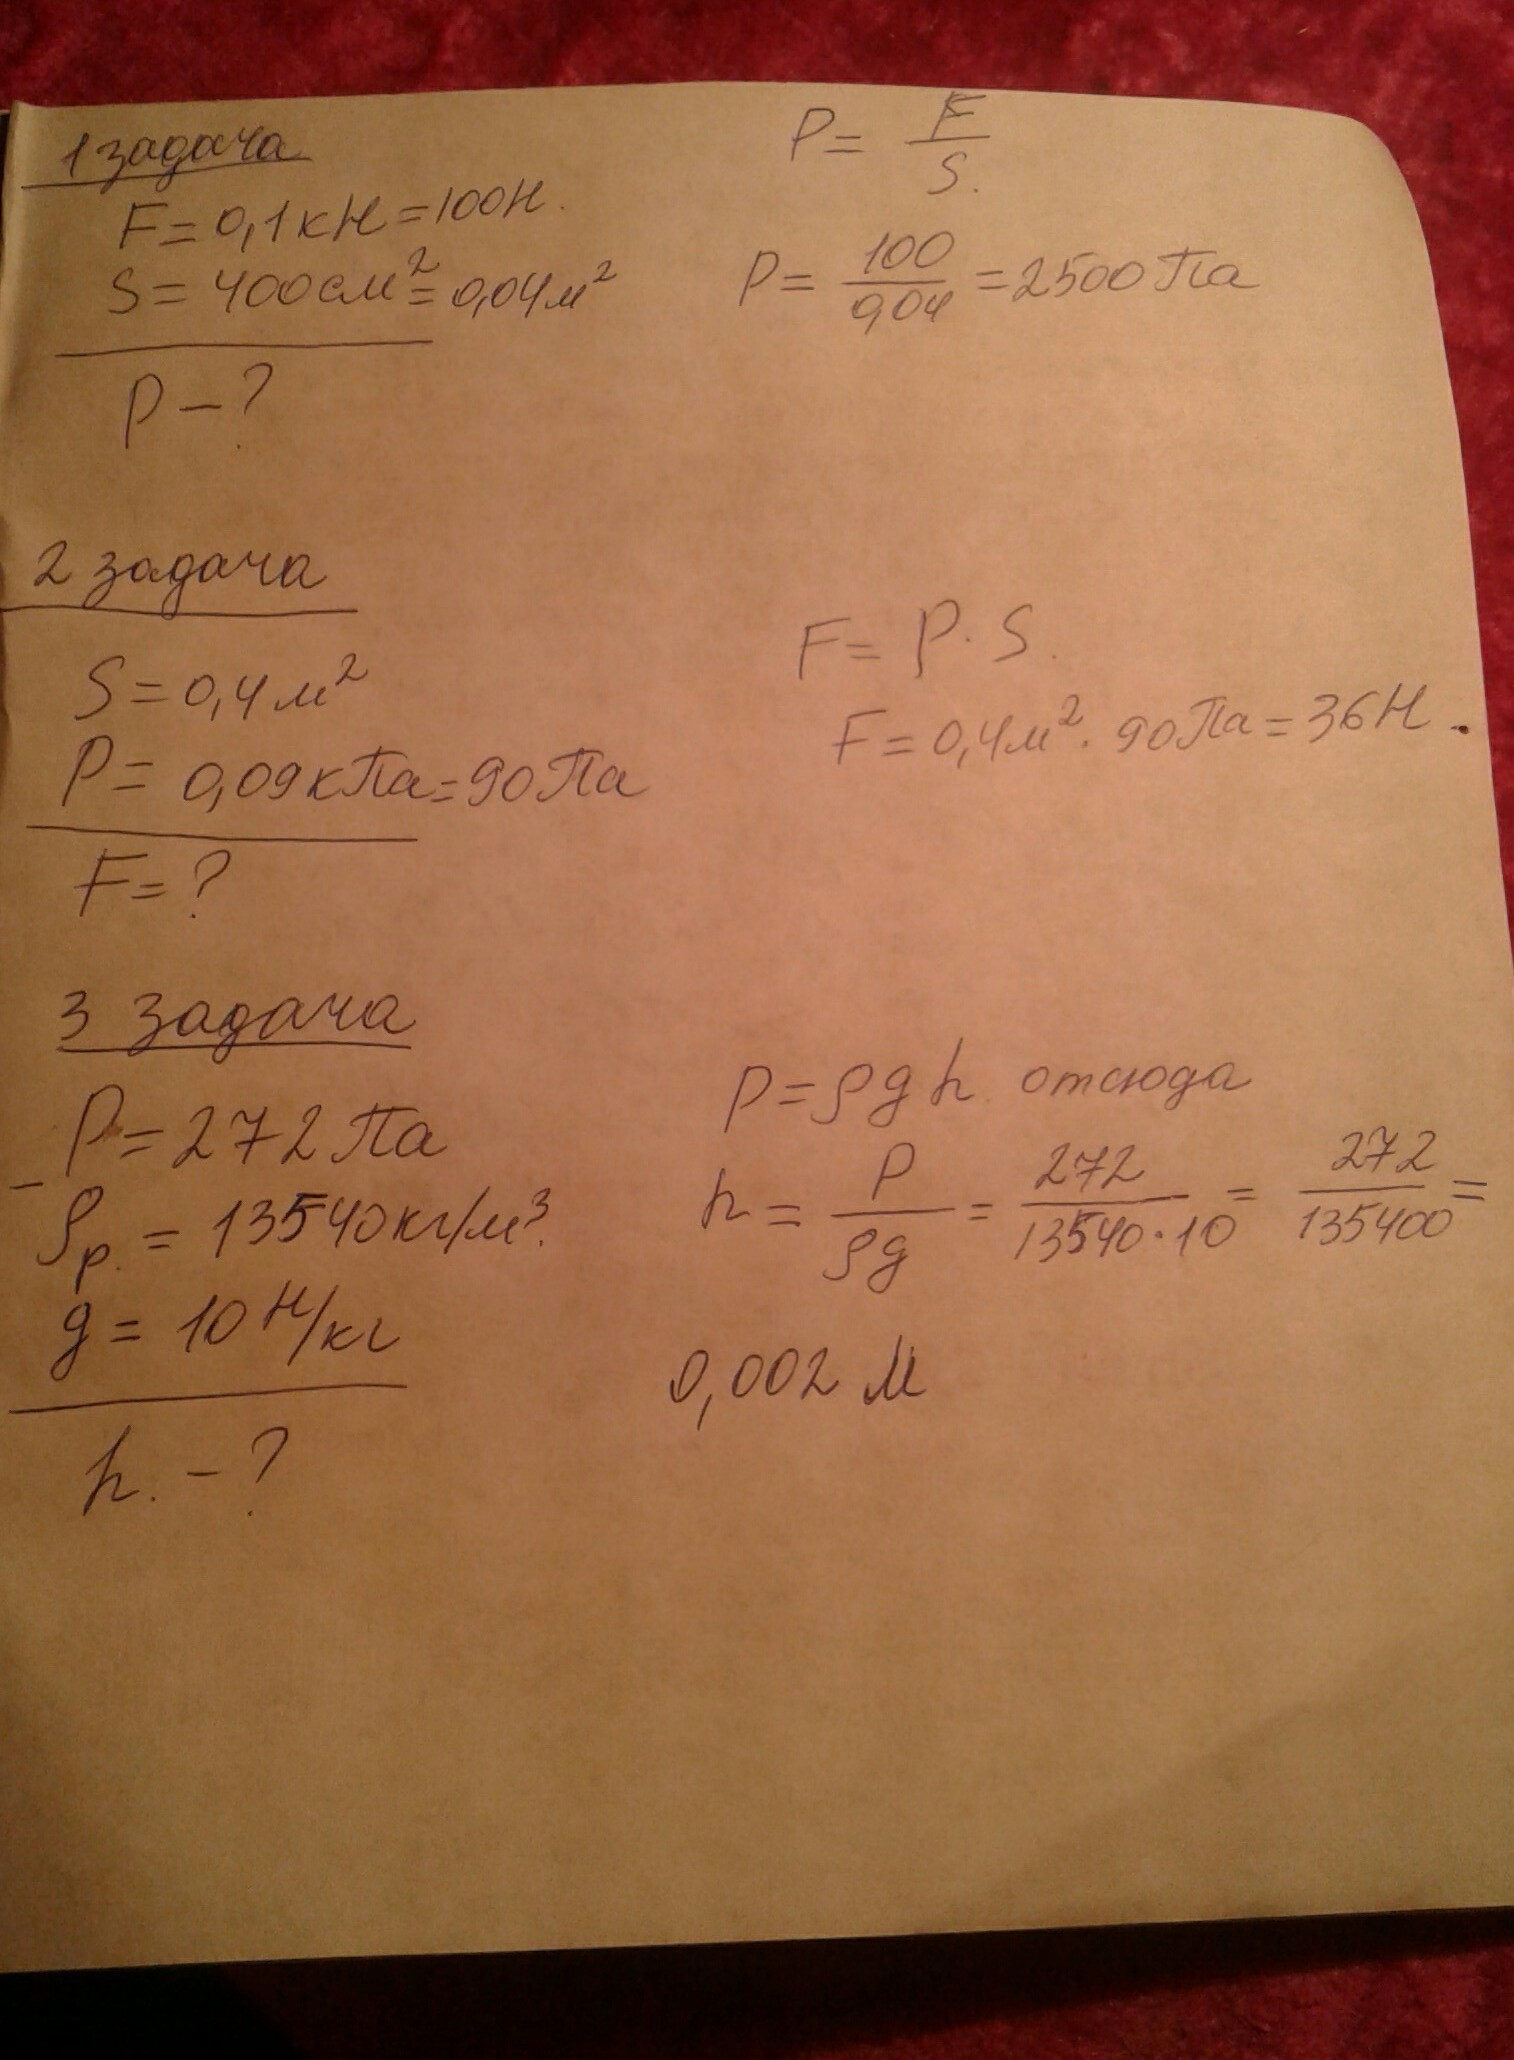 1 задача
F = 0,1 кН = 100Н.
S = 400 см² = 0,04 м²
P - ?
P = F / S.
P = 100 / 0,04 = 2500 Па
2 задача
S = 0,4 м²
P = 0,09 кПа = 90 Па
F = ?
F = P · S.
F = 0,4 м² · 90 Па = 36 Н.
3 задача
P = 272 Па
ρр. = 13540 кг/м³.
g = 10 Н/кг
h. - ?
P = ρ g h. отсюда
h = P / ρg = 272 / 13540 · 10 = 272 / 135400 =
0,002 м